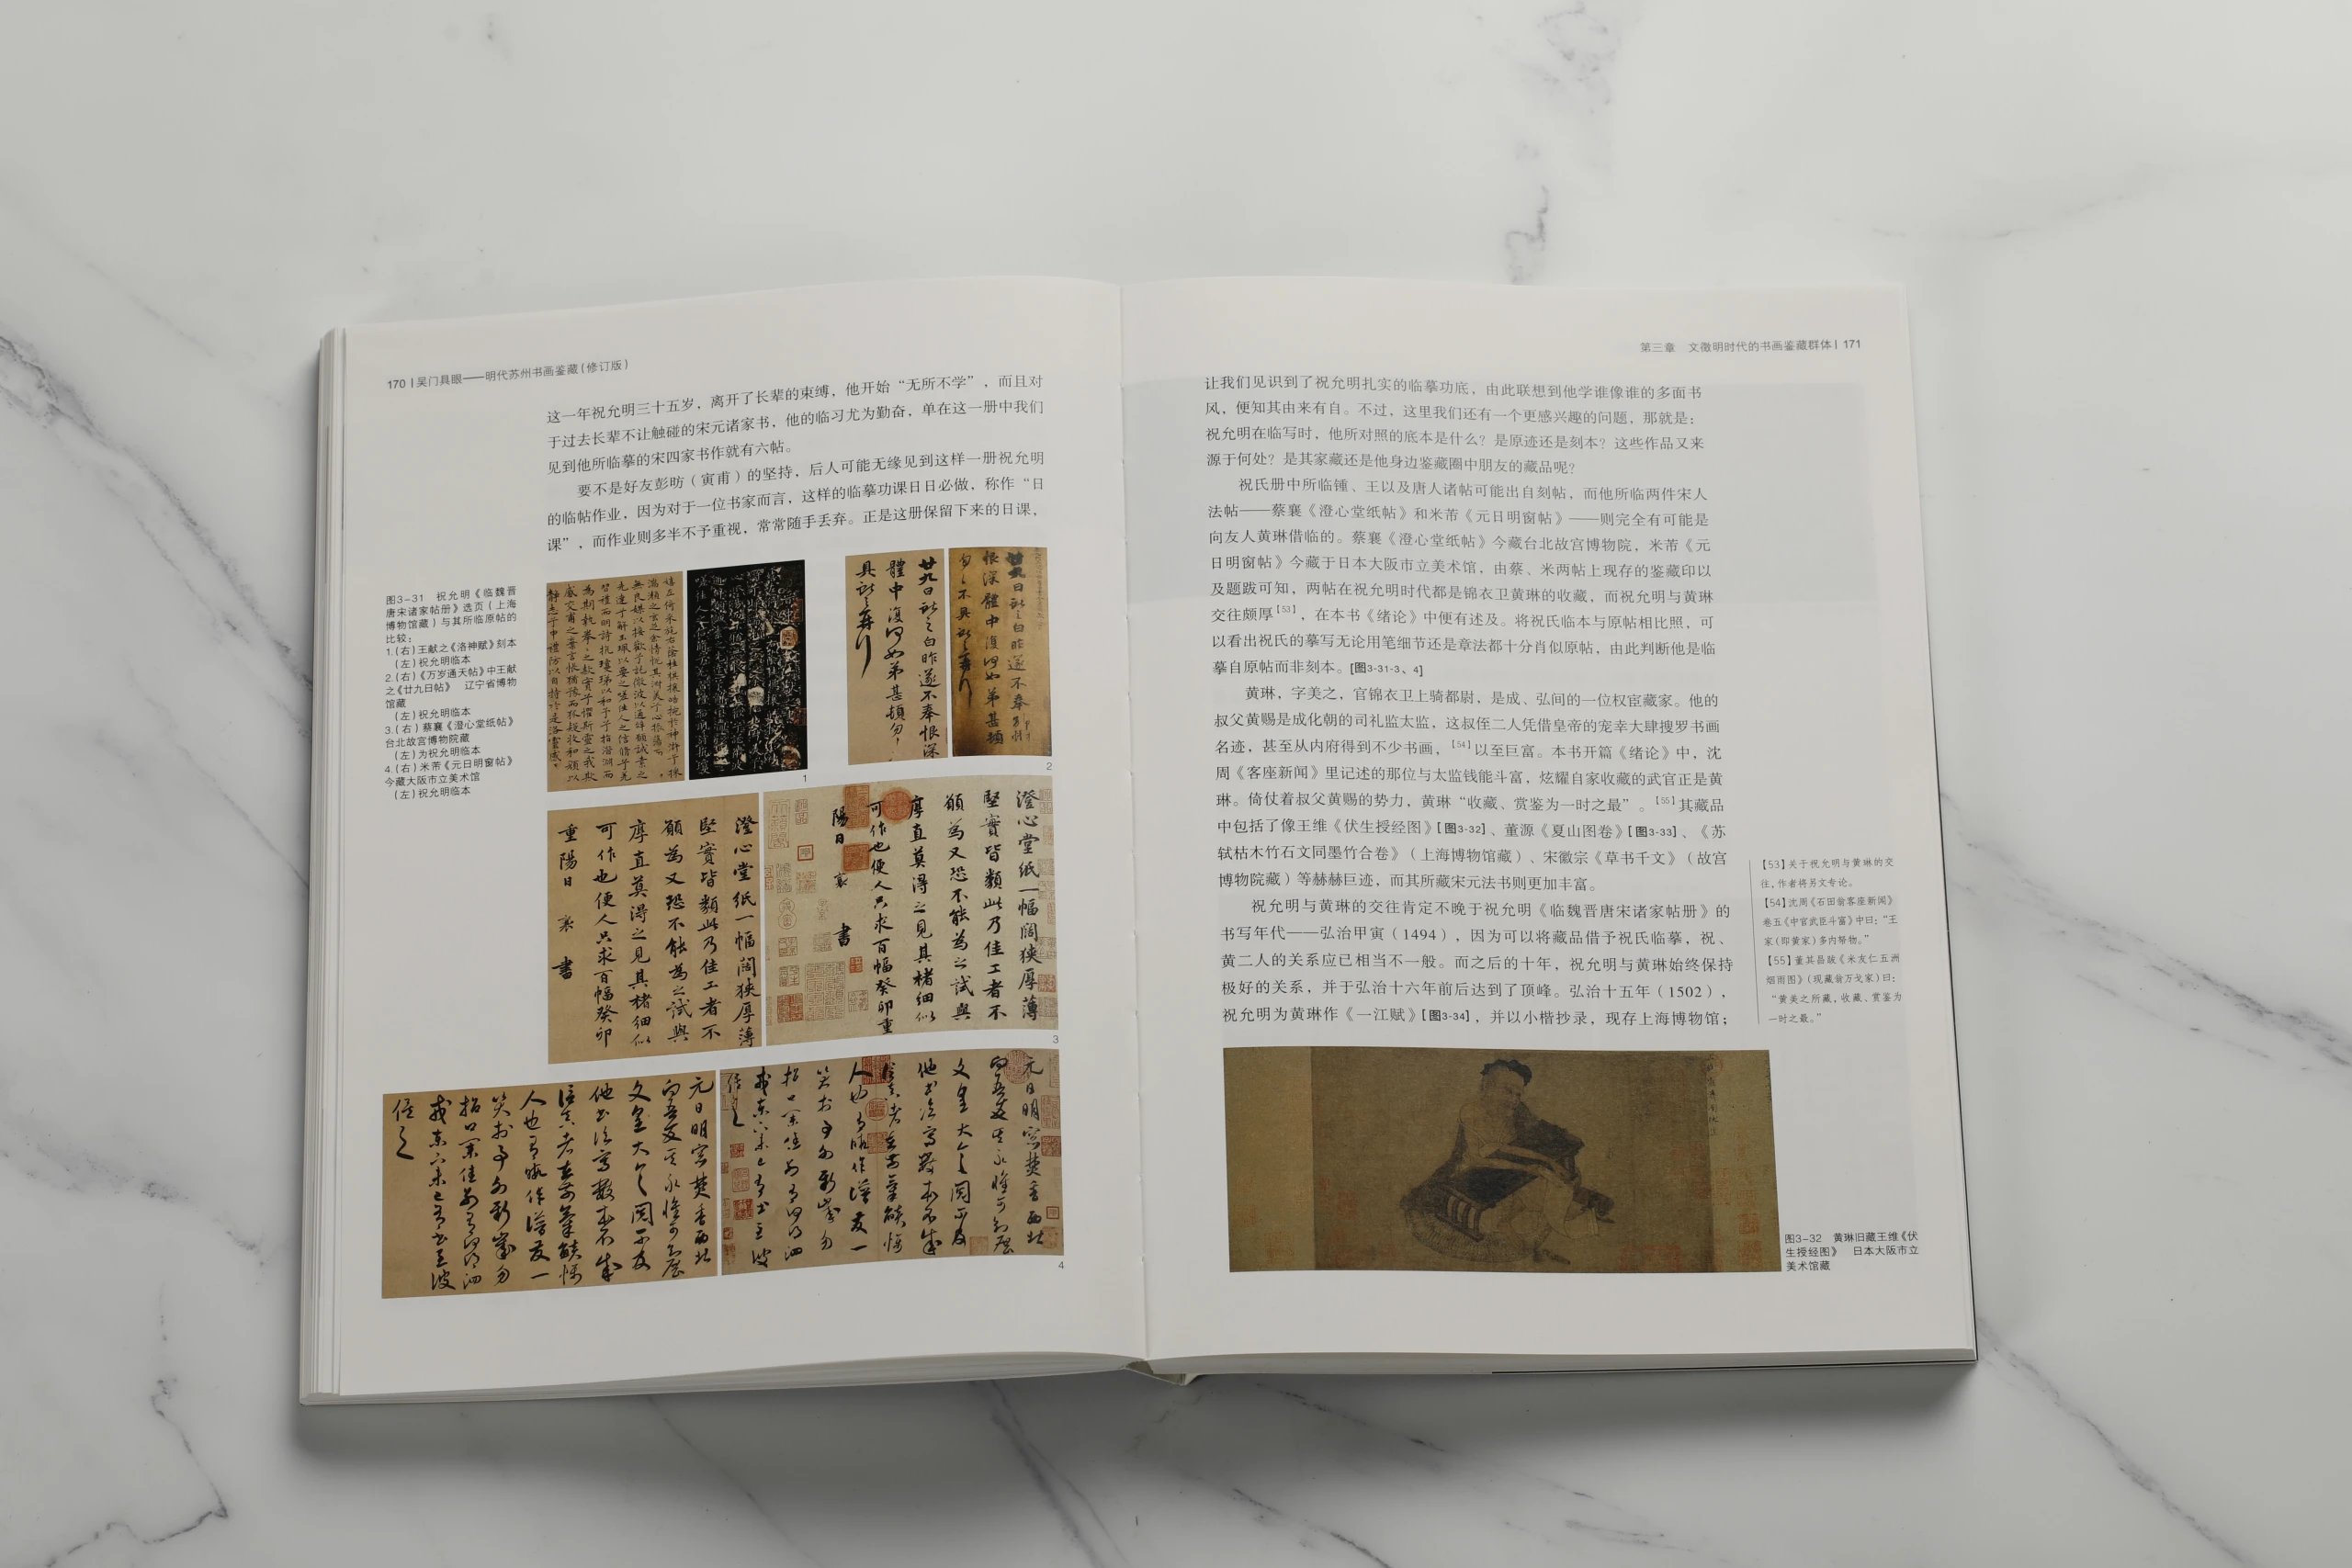 170 | 吴门具眼——明代苏州书画鉴藏(修订版)
这一年祝允明三十五岁，离开了长辈的束缚，他开始“无所不学”，而且对
于过去长辈不让触碰的宋元诸家书，他的临习尤为勤奋，单在这一册中我们
见到他所临摹的宋四家书作就有六帖。
要不是好友彭昉（寅甫）的坚持，后人可能无缘见到这样一册祝允明
的临帖作业，因为对于一位书家而言，这样的临摹功课日日必做，称作“日
课”，而作业则多半不予重视，常常随手丢弃。正是这册保留下来的日课，
图3-31 祝允明《临魏晋
唐宋诸家帖册》选页(上海
博物馆藏)与其所临原帖的
比较：
1.(右)王献之《洛神赋》刻本
(左)祝允明临本
2.(右)《万岁通天帖》中王献
之《廿九日帖》 辽宁省博物
馆藏
(左)祝允明临本
3.(右)蔡襄《澄心堂纸帖》
台北故宫博物院藏
(左)为祝允明临本
4.(右)米芾《元日明窗帖》
今藏大阪市立美术馆
(左)祝允明临本
1
廿九日獻之白昨遂不奉恨深
體中復何如弟甚頓匆匆
具獻之再行
2
澄心堂纸一幅闊狹厚薄
堅實皆類此乃佳工者不
願為又恐不能為之試與
厚直莫得之見其楮細似
可作也便人只求百幅癸卯重
陽日 襄 書
澄心堂纸一幅闊狹厚薄
堅實皆類此乃佳工者不
願為又恐不能為之試與
厚直莫得之見其楮細似
可作也便人只求百幅癸卯
重陽日 襄 書
3
4
第三章 文徵明时代的书画鉴藏群体 | 171
让我们见识到了祝允明扎实的临摹功底，由此联想到他学谁像谁的多面书
风，便知其由来有自。不过，这里我们还有一个更感兴趣的问题，那就是：
祝允明在临写时，他所对照的底本是什么？是原迹还是刻本？这些作品又来
源于何处？是其家藏还是他身边鉴藏圈中朋友的藏品呢？
祝氏册中所临锺、王以及唐人诸帖可能出自刻帖，而他所临两件宋人
法帖——蔡襄《澄心堂纸帖》和米芾《元日明窗帖》——则完全有可能是
向友人黄琳借临的。蔡襄《澄心堂纸帖》今藏台北故宫博物院，米芾《元
日明窗帖》今藏于日本大阪市立美术馆，由蔡、米两帖上现存的鉴藏印以
及题跋可知，两帖在祝允明时代都是锦衣卫黄琳的收藏，而祝允明与黄琳
交往颇厚[53]，在本书《绪论》中便有述及。将祝氏临本与原帖相比照，可
以看出祝氏的摹写无论用笔细节还是章法都十分肖似原帖，由此判断他是临
摹自原帖而非刻本。[图3-31-3、4]
黄琳，字美之，官锦衣卫上骑都尉，是成、弘间的一位权宦藏家。他的
叔父黄赐是成化朝的司礼监太监，这叔侄二人凭借皇帝的宠幸大肆搜罗书画
名迹，甚至从内府得到不少书画，[54]以至巨富。本书开篇《绪论》中，沈
周《客座新闻》里记述的那位与太监钱能斗富，炫耀自家收藏的武官正是黄
琳。倚仗着叔父黄赐的势力，黄琳“收藏、赏鉴为一时之最”。[55]其藏品
中包括了像王维《伏生授经图》[图3-32]、董源《夏山图卷》[图3-33]、《苏
轼枯木竹石文同墨竹合卷》（上海博物馆藏）、宋徽宗《草书千文》（故宫
博物院藏）等赫赫巨迹，而其所藏宋元法书则更加丰富。
祝允明与黄琳的交往肯定不晚于祝允明《临魏晋唐宋诸家帖册》的
书写年代——弘治甲寅（1494），因为可以将藏品借予祝氏临摹，祝、
黄二人的关系应已相当不一般。而之后的十年，祝允明与黄琳始终保持
极好的关系，并于弘治十六年前后达到了顶峰。弘治十五年（1502），
祝允明为黄琳作《一江赋》[图3-34]，并以小楷抄录，现存上海博物馆；
【53】关于祝允明与黄琳的交
往，作者将另文专论。
【54】沈周《石田翁客座新闻》
卷五《中官武臣斗富》中曰：“王
家(即黄家)多内帑物。”
【55】董其昌跋《米友仁五洲
烟雨图》(现藏翁万戈家)曰：
“黄美之所藏，收藏、赏鉴为
一时之最。”
图3-32 黄琳旧藏王维《伏
生授经图》 日本大阪市立
美术馆藏